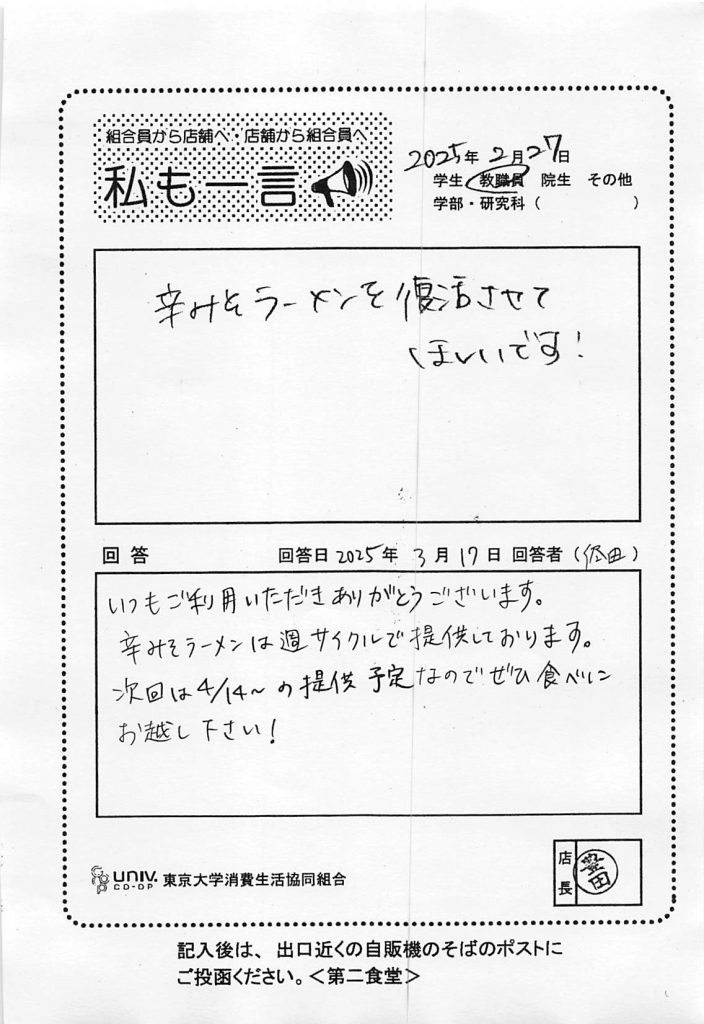 組合員から店舗へ・店舗から組合員へ
私も一言
2025年2月27日
学生 教職員 院生 その他
学部・研究科（ ）
辛みそラーメンを復活させて
ほしいです!
回答 回答日2025年3月17日回答者（ ）
いつもご利用いただきありがとうございます。
辛みそラーメンは週サイクルで提供しております。
次回は4/14～の提供予定なのでぜひ食べに
お越し下さい!
UNIV. CO-OP 東京大学消費生活協同組合
店長
豊田
記入後は、出口近くの自販機のそばのポストに
ご投函ください。＜第二食堂＞